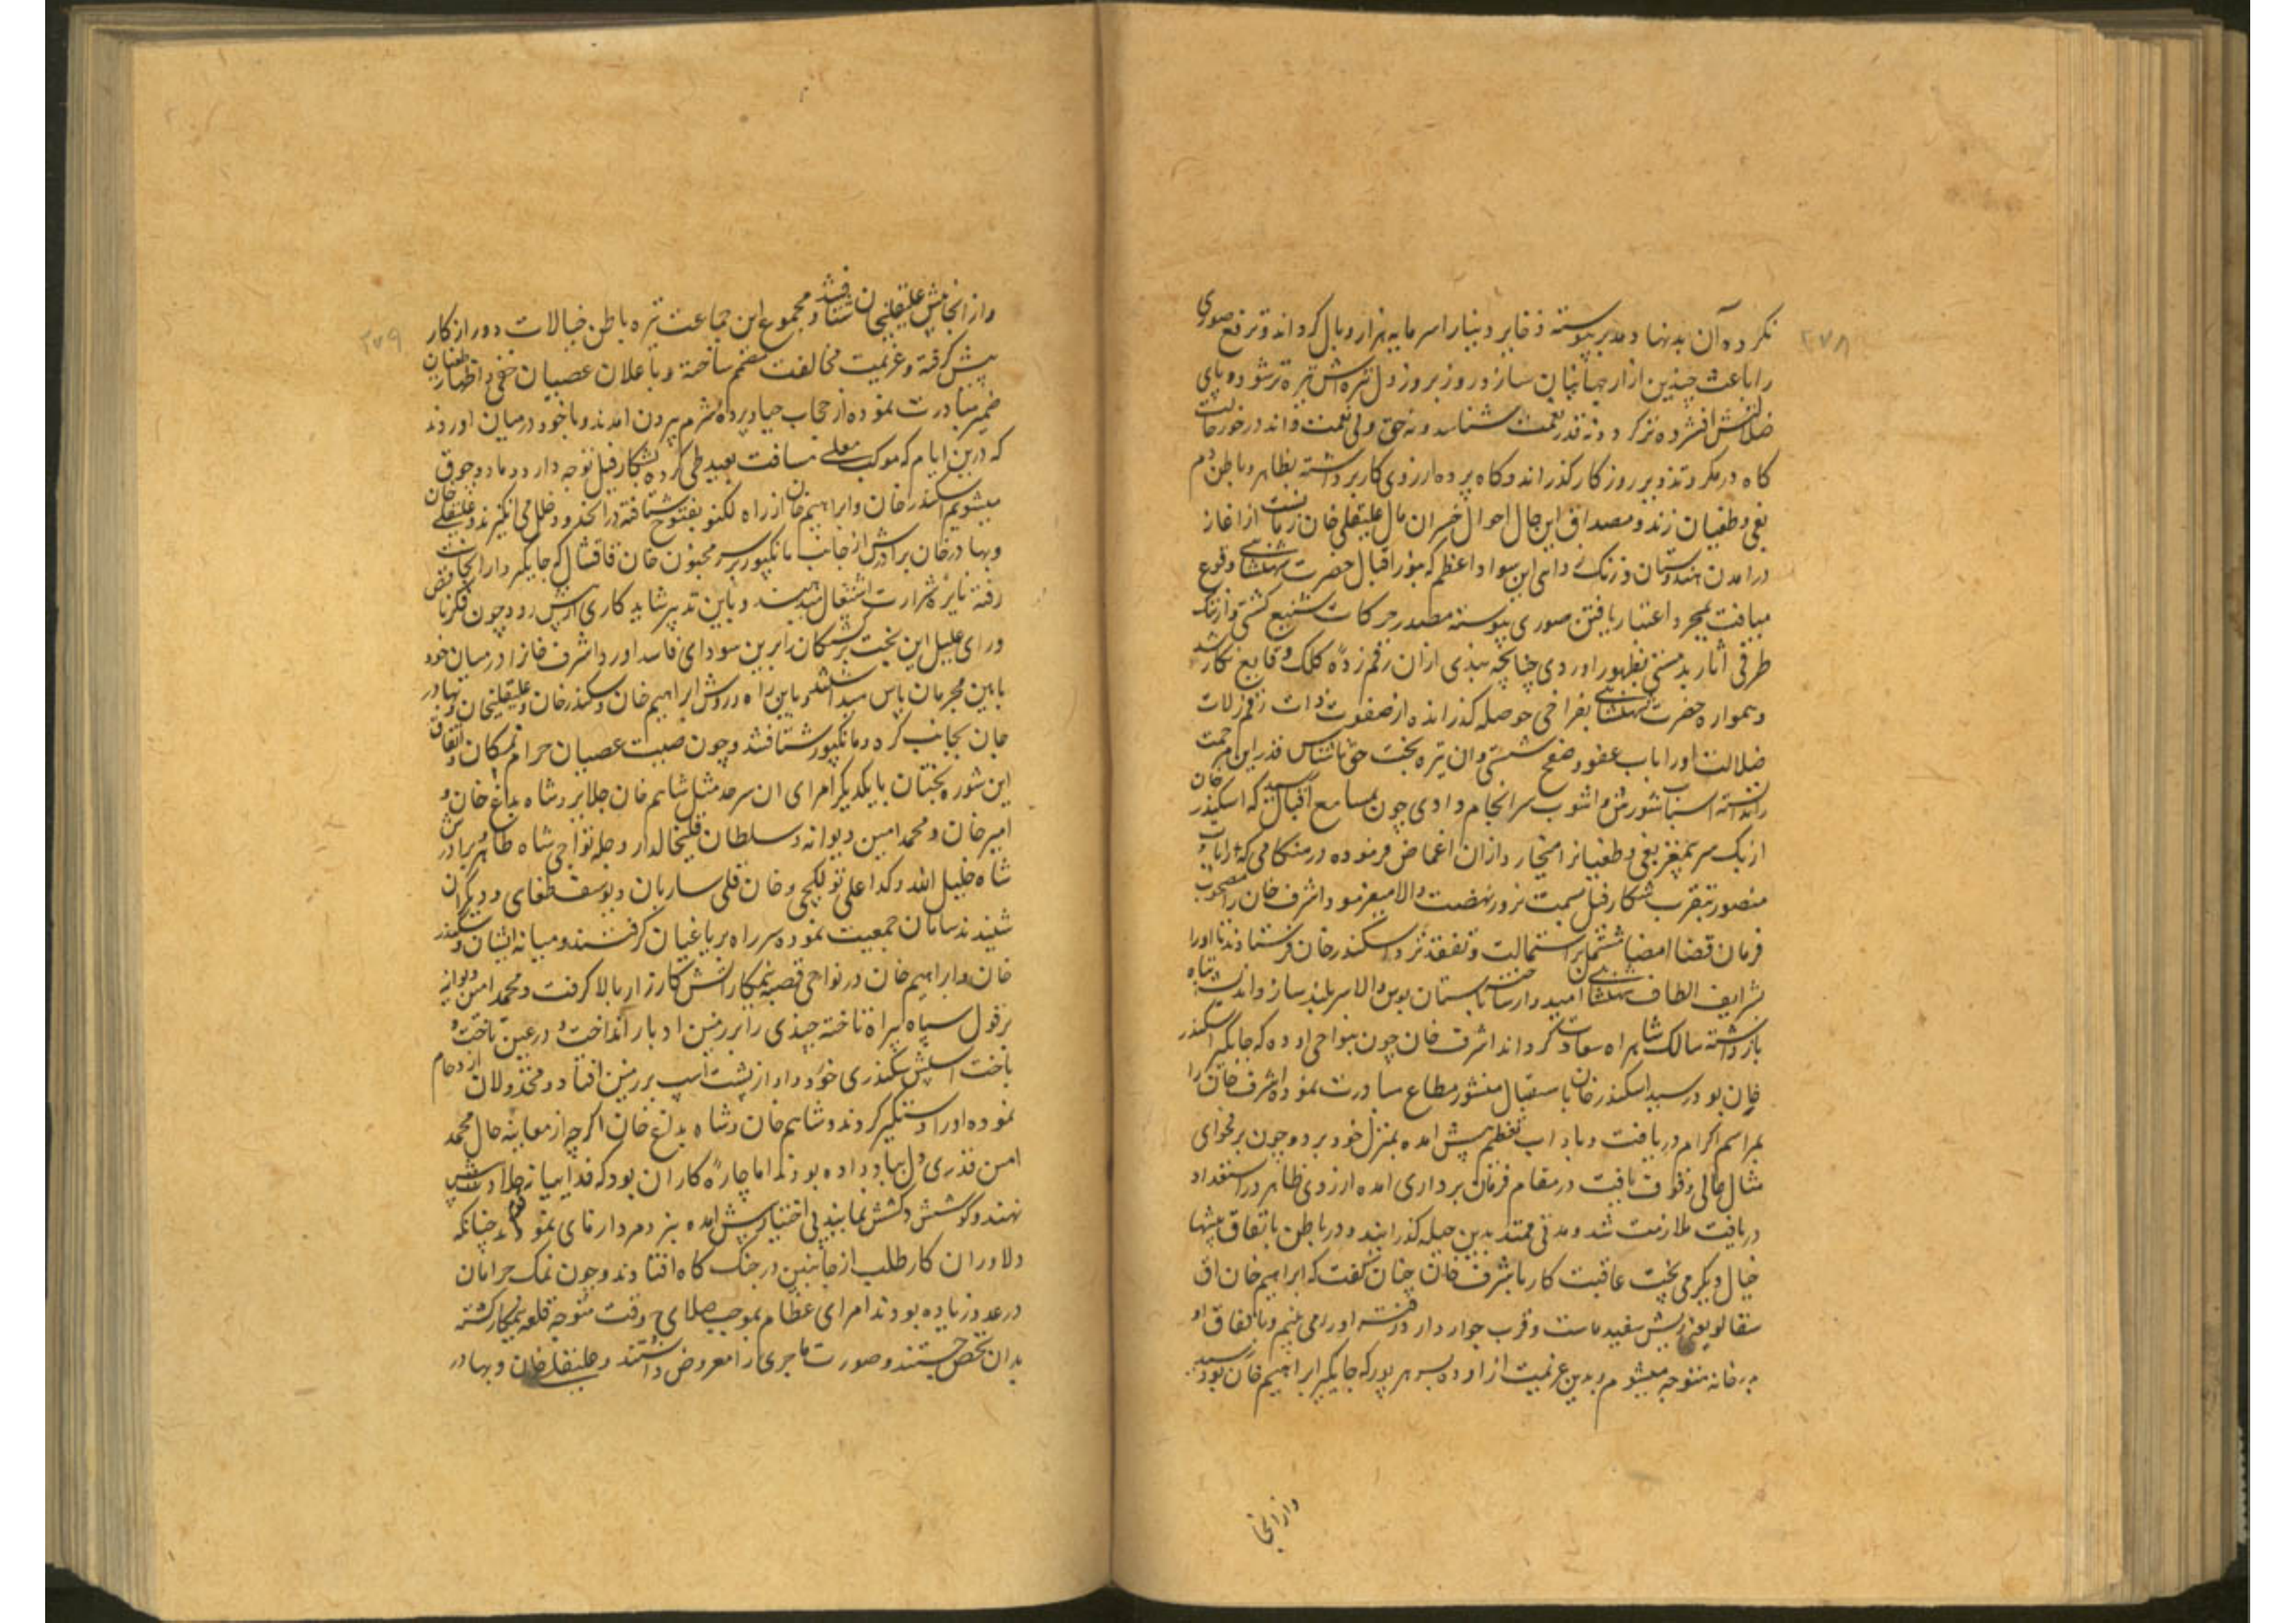 ۲۷۸
نکرده آن بدنها و مدبر پیوسته ذخایر دینار را سرمایه هزار وبال کرداند و ترفع صوری
را باعث چندین ازار جهانیان سازد و روز بروز دل تیره اش تیره تر شود و پای
ضلالتش افشرده تر کردد و نه قدر نعمت شناسد و نه حق ولی نعمت داند در خور حالت
کاه در مکر و تذویر روزکار کذراند و کاه پرده از روی کار برداشته بظاهر و باطن دم
بغی و طغیان زند و مصداق این حال احوال خسران مآل علیقلی خان زمانست از اغاز
در امدن هندوستان و این سواد اعظم که بنور اقبال حضرت شهنشاهی وقوع
میافت بمجرد اعتبار یافتن صوری پیوسته مصدر حرکات شنیع کشتی و از تنک
ظرفی اثار بدمستی بظهور اوردی چنانچه نبذی ازان رقم زده کلک وقایع نکار شد
و همواره حضرت شهنشاهی بفراخی حوصله کذرانده از صفوت ذات رقم زلات
ضلالت اورا باب عفو و صفح شستی و ان تیره بخت حق ناشناس قدر این مرحمت
ندانسته اسباب شورش و اشوب سرانجام دادی چون بمسامع اقبال رسید که اسکندر خان
ازبک سر بمغز بغی و طغیان میخارد ازان اغماض فرموده در هنکامی که رایات
منصور بتقریب شکار فیل بسمت نرور نهضت والا میفرمود اشرف خان را مصحوب
فرمان قضا امضا مشتمل بر استمالت و تفقد نزد اسکندر خان فرستادند تا اورا
بشرایف الطاف شهنشاهی امیدوار ساخته باستان بوس والا سربلند سازد و اندیشه تباه
بازداشته سالک شاهراه سعادت کرداند اشرف خان چون بنواحی اوده که جایکیر اسکندر
خان بود رسید اسکندر خان باستقبال منشور مطاع مبادرت نموده اشرف خان را
بمراسم اکرام دریافت و باداب تعظیم پیش امده بمنزل خود برد و چون بر فحوای
مثال عالی وقوف یافت در مقام فرمان برداری امده از روی ظاهر در استعداد
دریافت ملازمت شد و مدتی ممتد بدین حیله کذرانید و در باطن باتفاق
خیال دیکر می پخت عاقبت کار باشرف خان چنان کفت که ابراهیم خان اق
سقالو یعنی ریش سفید ماست و قرب جوار دارد رفته اورا می بینم و باتفاق او
درخانه متوجه میشوم و بدین عزیمت از اوده بسرهرپور که جایکیر ابراهیم خان بود رسید
وازانجا
۲۷۹
وازانجا پیش علیقلیخان شتافتند و مجموع این جماعت تیره باطن خیالات دور از کار
پیش کرفته و عزیمت مخالفت مصمم ساخته و باعلان عصیان خفی و اظهار طغیان
ضمیر مبادرت نموده از حجاب حیا و پرده شرم بیرون امدند و با خود درمیان اوردند
که درین ایام که موکب معلی مسافت بعید طی کرده بشکار فیل توجه دارد و ما دوجوق
میشویم اسکندر خان و ابراهیم خان از راه لکنو بقنوج شتافته در انحدود خلل می انکیزند و علیقلی خان
و بهادر خان برادرش از جانب مانکپور بر سر مجنون خان قاقشال که جایکیردار انجاست
رفته نایره شرارت اشتعال میدهند و باین تدبیر شاید کاری از پیش رود چون فکر ناقص
و رای علیل این بخت برکشتکان را برین سودای فاسد اورد اشرف خانرا درمیان خود
بایین مجرمان پاس میداشتند و باین راه و روش ابراهیم خان و سکندر خان و علیقلیخان و بهادر
خان بجانب کره و مانکپور شتافتند و چون صیت عصیان حرام نمکان و اتفاق
این شوره بختان با یکدیکر امرای ان سرحد مثل شاهم خان جلایر و شاه بداغ خان و
امیر خان و محمد امین دیوانه و سلطان قلی خالدار و جمله نواحی شاه طاهر برادر
شاه خلیل الله و کدا علی تولکچی و خان قلی ساربان و یوسف طغای و دیکران
شنیدند سامان جمعیت نموده سر راه بر یاغیان کرفتند و میانه ایشان و سکندر
خان و ابراهیم خان در نواحی قصبه نیمکار اتش کارزار بالا کرفت و محمد امین دیوانه
بر قول سپاه بیراه تاخته چندی را بر زمین ادبار انداخت و در عین تاخت و
باخت اسپش سکندری خورد و او از پشت اسپ بر زمین افتاد و مخذولان ازدحام
نموده اورا دستکیر کردند و شاهم خان و شاه بداغ خان اکرچه از معاینه حال محمد
امین قدری دل بباد داده بودند اما چاره کار ان بود که فداییانه جلادت پیش
نهند و کوشش و کشش نمایند بی اختیار پیش امده نبرد مردازمای نمودند چنانکه
دلاوران کار طلب از جانبین در جنک کاه افتادند و چون نمک حرامان
در عدد زیاده بودند امرای عظام بموجب صلاح وقت متوجه قلعه نیمکار کشته
بدان تحصن جستند و صورت ماجری را معروض داشتند و علیقلی خان و بهادر